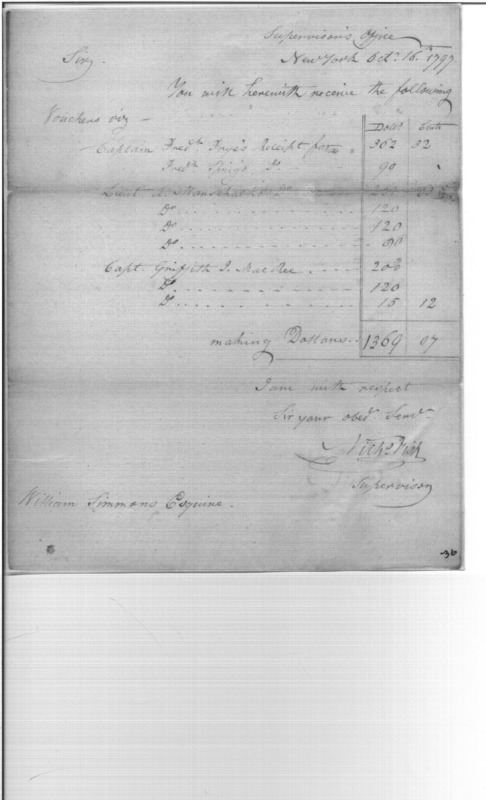 Supervisor's Office
New York Octr. 16th 1797
Sir,
You will herewith receive the following
Vouchers viz —
Dolls Cents
Captain Fredk. Frye's Receipt for 362 32
Fredk. Do. 90
Lieut A. Do.
Do. 120
Do. 120
Do. 90
Capt. Griffith J. MacRee 200
Do. 120
Do. 15 12
making Dollars.. 1369 07
I am with respect
Sir your obedt. Servt.
Nichs. Fish
Supervisor
William Simmons Esquire.
36